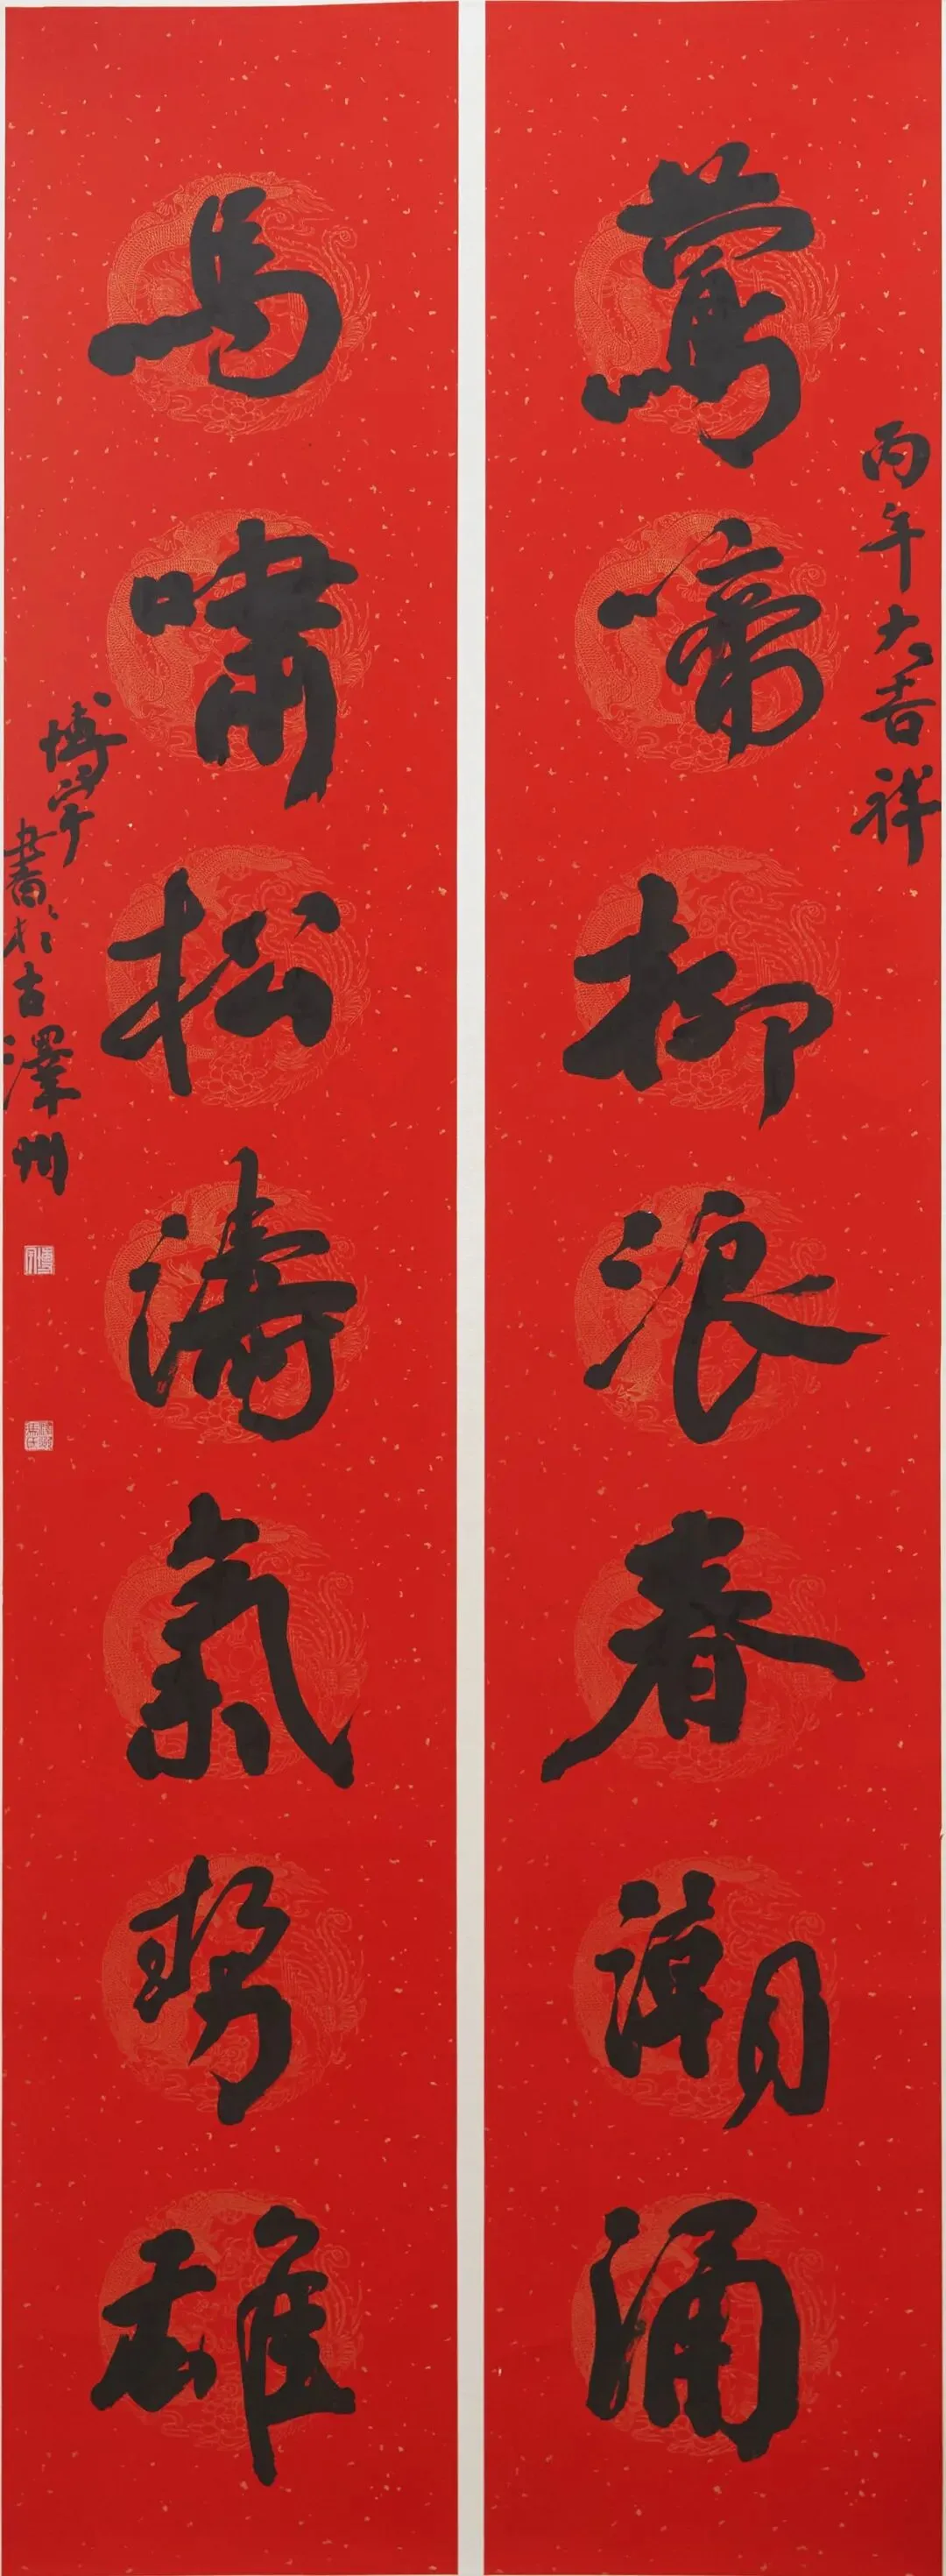 鶯啼柳浪春潮涌
丙午大吉祥
馬嘯松濤氣勢雄
博宇
書於古澤州